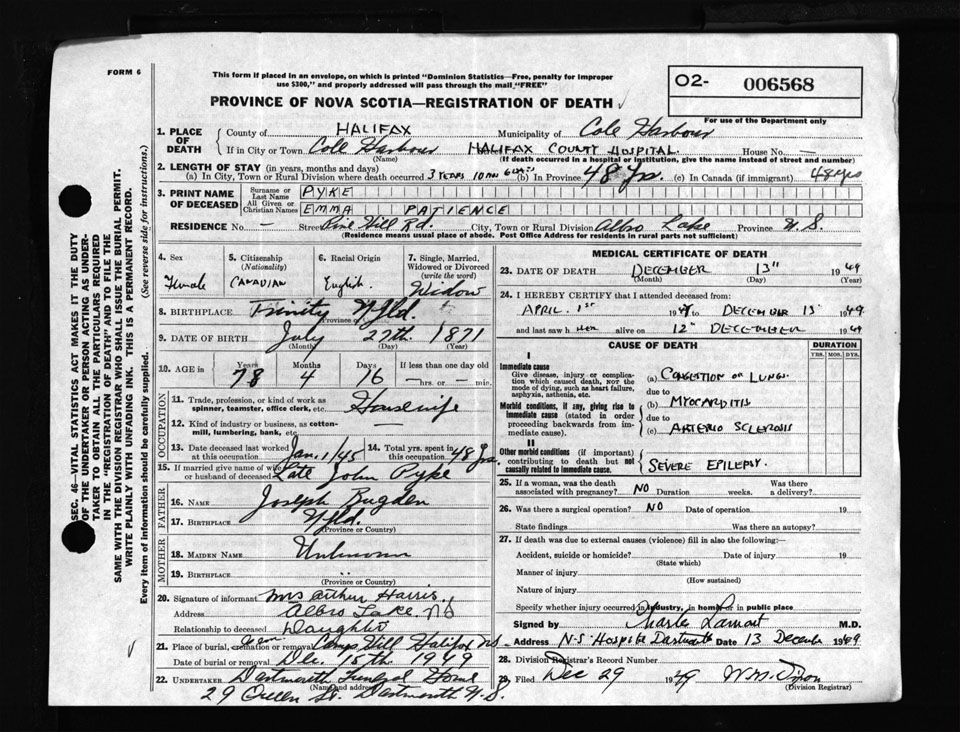 FORM 6
This form if placed in an envelope, on which is printed "Dominion Statistics—Free, penalty for improper
use $300," and properly addressed will pass through the mail, "FREE"
PROVINCE OF NOVA SCOTIA—REGISTRATION OF DEATH
O2- 006568
For use of the Department only
1. PLACE OF DEATH
County of HALIFAX Municipality of Cole Harbour
If in City or Town Cole Harbour HALIFAX COUNTY HOSPITAL. House No. —
(Name) (If death occurred in a hospital or institution, give the name instead of street and number)
2. LENGTH OF STAY (in years, months and days)
(a) In City, Town or Rural Division where death occurred 3 YEARS 10 MOS 6 DAYS (b) In Province 48 Yrs. (c) In Canada (if immigrant) 48 yrs
3. PRINT NAME OF DECEASED
Surname or Last Name PYKE
All Given or Christian Names EMMA PATIENCE
RESIDENCE No. — Street Pine Hill Rd. City, Town or Rural Division Albro Lake Province N.S.
(Residence means usual place of abode. Post Office Address for residents in rural parts not sufficient)
4. Sex Female
5. Citizenship (Nationality) CANADIAN
6. Racial Origin English
7. Single, Married, Widowed or Divorced (write the word) Widow
8. BIRTHPLACE Trinity Nfld.
(Province or Country)
9. DATE OF BIRTH July 27th 1871
(Month) (Day) (Year)
10. AGE in Years 78 Months 4 Days 16 If less than one day old — hrs. or — min.
OCCUPATION
11. Trade, profession, or kind of work as spinner, teamster, office clerk, etc. Housewife
12. Kind of industry or business, as cotton-mill, lumbering, bank, etc. —
13. Date deceased last worked at this occupation Jan. 1/45 14. Total yrs. spent in this occupation 48 Yrs.
15. If married give name of wife or husband of deceased Late John Pyke
FATHER
16. NAME Joseph Bugden
17. BIRTHPLACE Nfld.
(Province or Country)
MOTHER
18. MAIDEN NAME Unknown
19. BIRTHPLACE "
(Province or Country)
20. Signature of informant Mrs Arthur Harris
Address Albro Lake NS
Relationship to deceased Daughter
21. Place of burial, cremation or removal Cem Camp Hill Halifax NS.
Date of burial or removal Dec. 15th 1949
22. UNDERTAKER Dartmouth Funeral Home
(Name and address)
29 Queen St. Dartmouth N.S.
MEDICAL CERTIFICATE OF DEATH
23. DATE OF DEATH DECEMBER 13th 1949
(Month) (Day) (Year)
24. I HEREBY CERTIFY that I attended deceased from:
APRIL 1st 1947 to DECEMBER 13th 1949
and last saw her alive on 12th DECEMBER 1949
CAUSE OF DEATH DURATION
YRS. MOS. DYS.
I
Immediate cause
Give disease, injury or complication which caused death, NOT the mode of dying, such as heart failure, asphyxia, asthenia, etc.
(a) CONGESTION OF LUNGS.
due to
Morbid conditions, if any, giving rise to immediate cause (stated in order proceeding backwards from immediate cause).
(b) MYOCARDITIS
due to
(c) ARTERIO SCLEROSIS
II
Other morbid conditions (if important) contributing to death but not causally related to immediate cause.
SEVERE EPILEPSY.
25. If a woman, was the death associated with pregnancy? NO Duration weeks. Was there a delivery?
26. Was there a surgical operation? NO Date of operation 19
State findings Was there an autopsy?
27. If death was due to external causes (violence) fill in also the following:
Accident, suicide or homicide? Date of injury 19
(State which)
Manner of injury
(How sustained)
Nature of injury
Specify whether injury occurred in industry, in home or in public place
Signed by Charles Lamont M.D.
Address N-S Hospital Dartmouth Date 13 December 1949
28. Division Registrar's Record Number
29. Filed Dec 29 1949
(Division Registrar)
SEC. 46—VITAL STATISTICS ACT MAKES IT THE DUTY
OF THE UNDERTAKER OR PERSON ACTING AS UNDER-
TAKER TO OBTAIN ALL THE PARTICULARS REQUIRED
IN THE "REGISTRATION OF DEATH" AND TO FILE THE
SAME WITH THE DIVISION REGISTRAR WHO SHALL ISSUE THE BURIAL PERMIT.
WRITE PLAINLY WITH UNFADING INK. THIS IS A PERMANENT RECORD.
Every item of information should be carefully supplied. (See reverse side for instructions.)